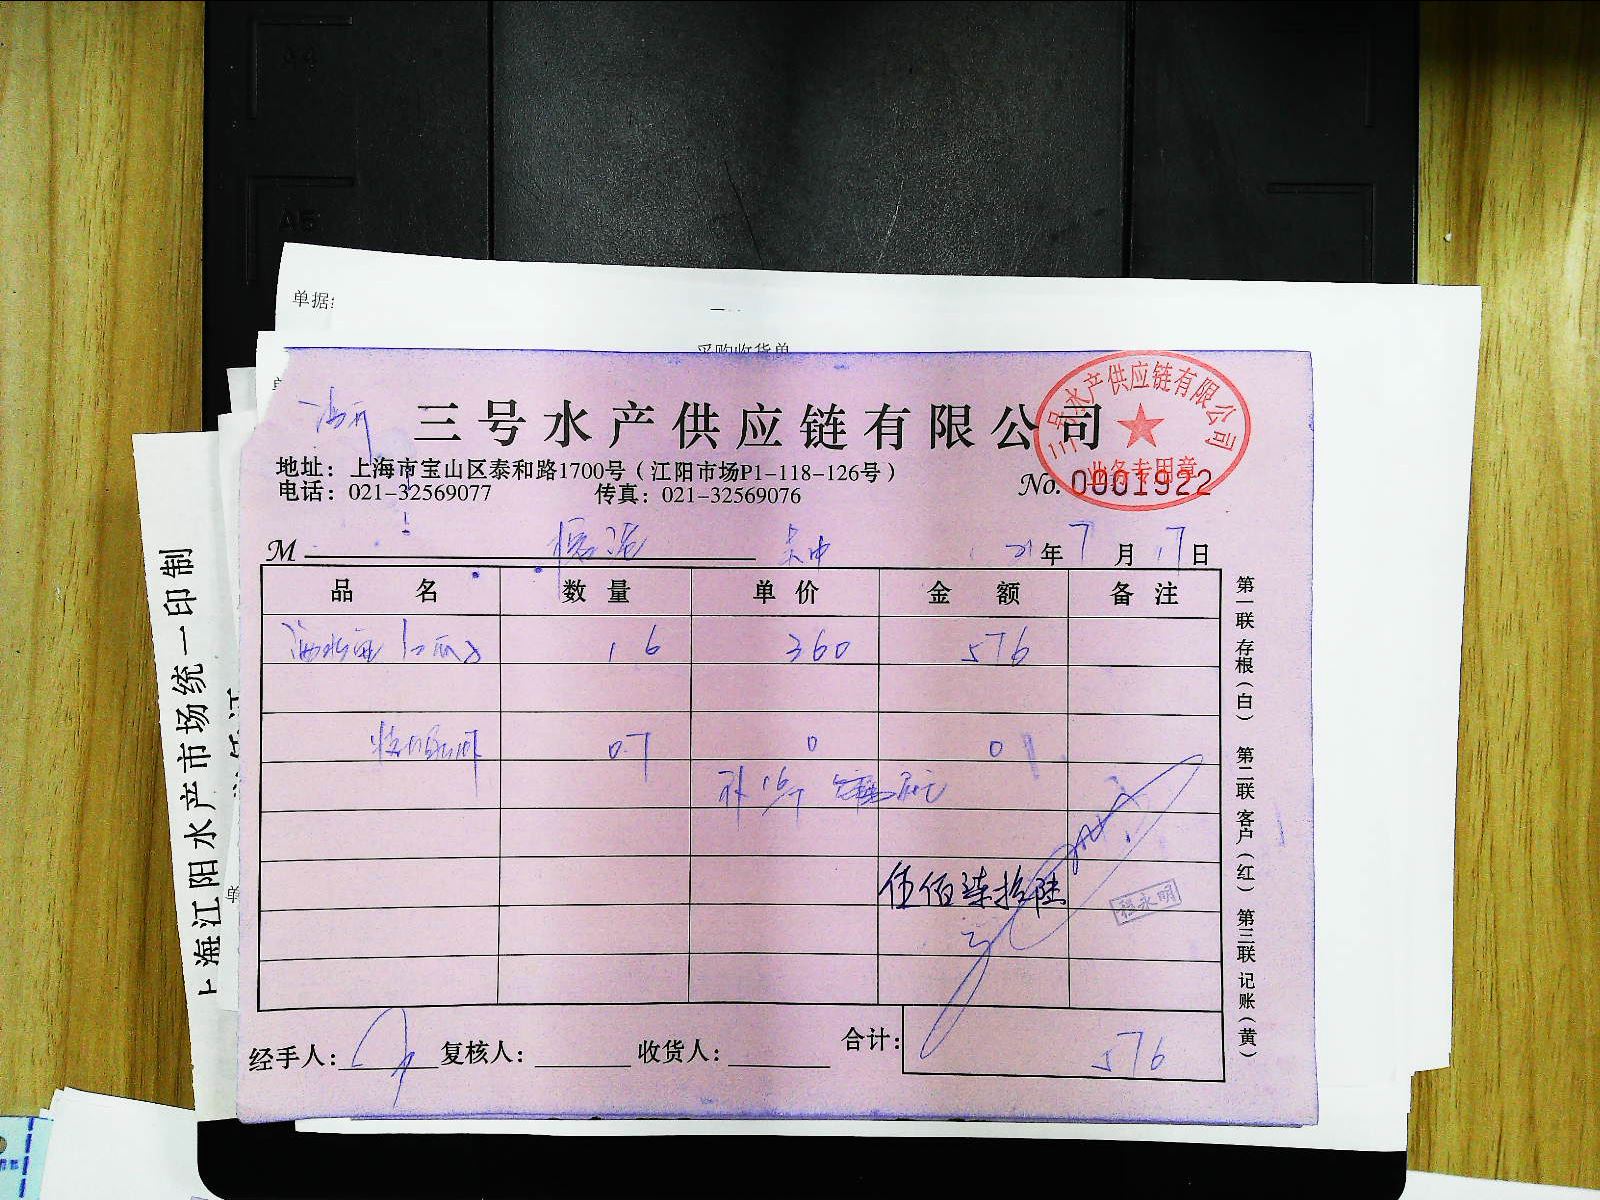 A4
A5
单据:
采购收货单
三号水产供应链有限公司
三号水产供应链有限公司
业务专用章
地址：上海市宝山区泰和路1700号（江阳市场P1-118-126号）
电话：021-32569077 传真：021-32569076
No. 0001922
M
21年7月17日
品名 数量 单价 金额 备注
1.6 360 576
0.7 0 0
伍佰柒拾陆
程永明
合计: 576
经手人: 复核人: 收货人:
第一联 存根（白） 第二联 客户（红） 第三联 记账（黄）
上海江阳水产市场统一印制